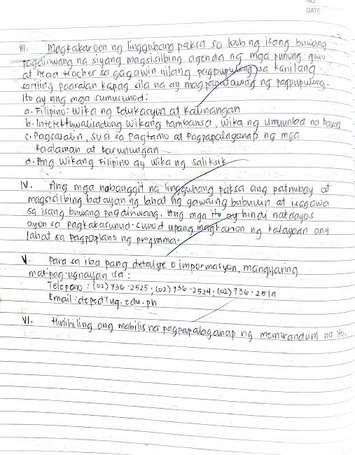 DATE
III. Magkakaroon ng lingguhang paksa sa loob ng isang buwang
pagdiriwang na siyang magsisilbing agenda ng mga punong guro
at Head teacher sa gagawin nilang pagpupulong sa kanilang
sariling paaralan kapag sila na ay magpapadaloy ng pagpupulong.
Ito ay ang mga sumusunod:
a. Filipino: Wika ng Edukasyon at Kalinangan
b. Intelektuwalisadong Wikang Pambansa, Wika ng Umuunlad na Bayan
c. Pagsasalin, susi sa Pagtamo at Pagpapalaganap ng mga
kaalaman at karunungan
d. Ang Wikang Filipino ay wika ng saliksik
IV. Ang mga nabanggit na lingguhang paksa ang patnubay at
magsisilbing batayan ng lahat ng gawaing bubuuin at isasagawa
sa isang buwang pagdiriwang. Ang mga ito ay hindi nakaayos
ayon sa pagkakasunud-sunod upang magkaroon ng kalayaan ang
lahat sa pagpaplano ng programa.
V. Para sa iba pang detalye o impormasyon, mangyaring
makipag-ugnayan sa:
Telepono: (02) 736-2525; (02) 736-2524; (02) 736-2519
VI. Hinihiling ang mabilis na pagpapalaganap ng memorandum na ito.